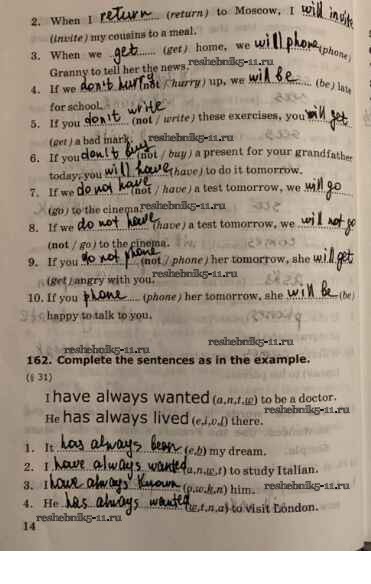 2. When I return (return) to Moscow, I will invite
(invite) my cousins to a meal.
3. When we get (get) home, we will phone (phone)
Granny to tell her the news. reshebnik5-11.ru
4. If we don't hurry (not / hurry) up, we will be (be) late
for school.
5. If you don't write (not / write) these exercises, you will get
(get) a bad mark. reshebnik5-11.ru
6. If you don't buy (not / buy) a present for your grandfather
today, you will have (have) to do it tomorrow.
7. If we do not have (not / have) a test tomorrow, we will go
(go) to the cinema. reshebnik5-11.ru
8. If we do not have (have) a test tomorrow, we will not go
(not / go) to the cinema.
9. If you do not phone (not / phone) her tomorrow, she will get
(get) angry with you. reshebnik5-11.ru
10. If you phone (phone) her tomorrow, she will be (be)
happy to talk to you.
reshebnik5-11.ru reshebnik5-11.ru
162. Complete the sentences as in the example.
(§ 31)
I have always wanted (a,n,t,w) to be a doctor.
He has always lived (e,i,v,l) there. reshebnik5-11.ru
reshebnik5-11.ru
1. It has always been (e,b) my dream.
2. I have always wanted (a,n,w,t) to study Italian.
3. I have always known (o,w,k,n) him. reshebnik5-11.ru
4. He has always wanted (w,t,n,a) to visit London.
reshebnik5-11.ru
14